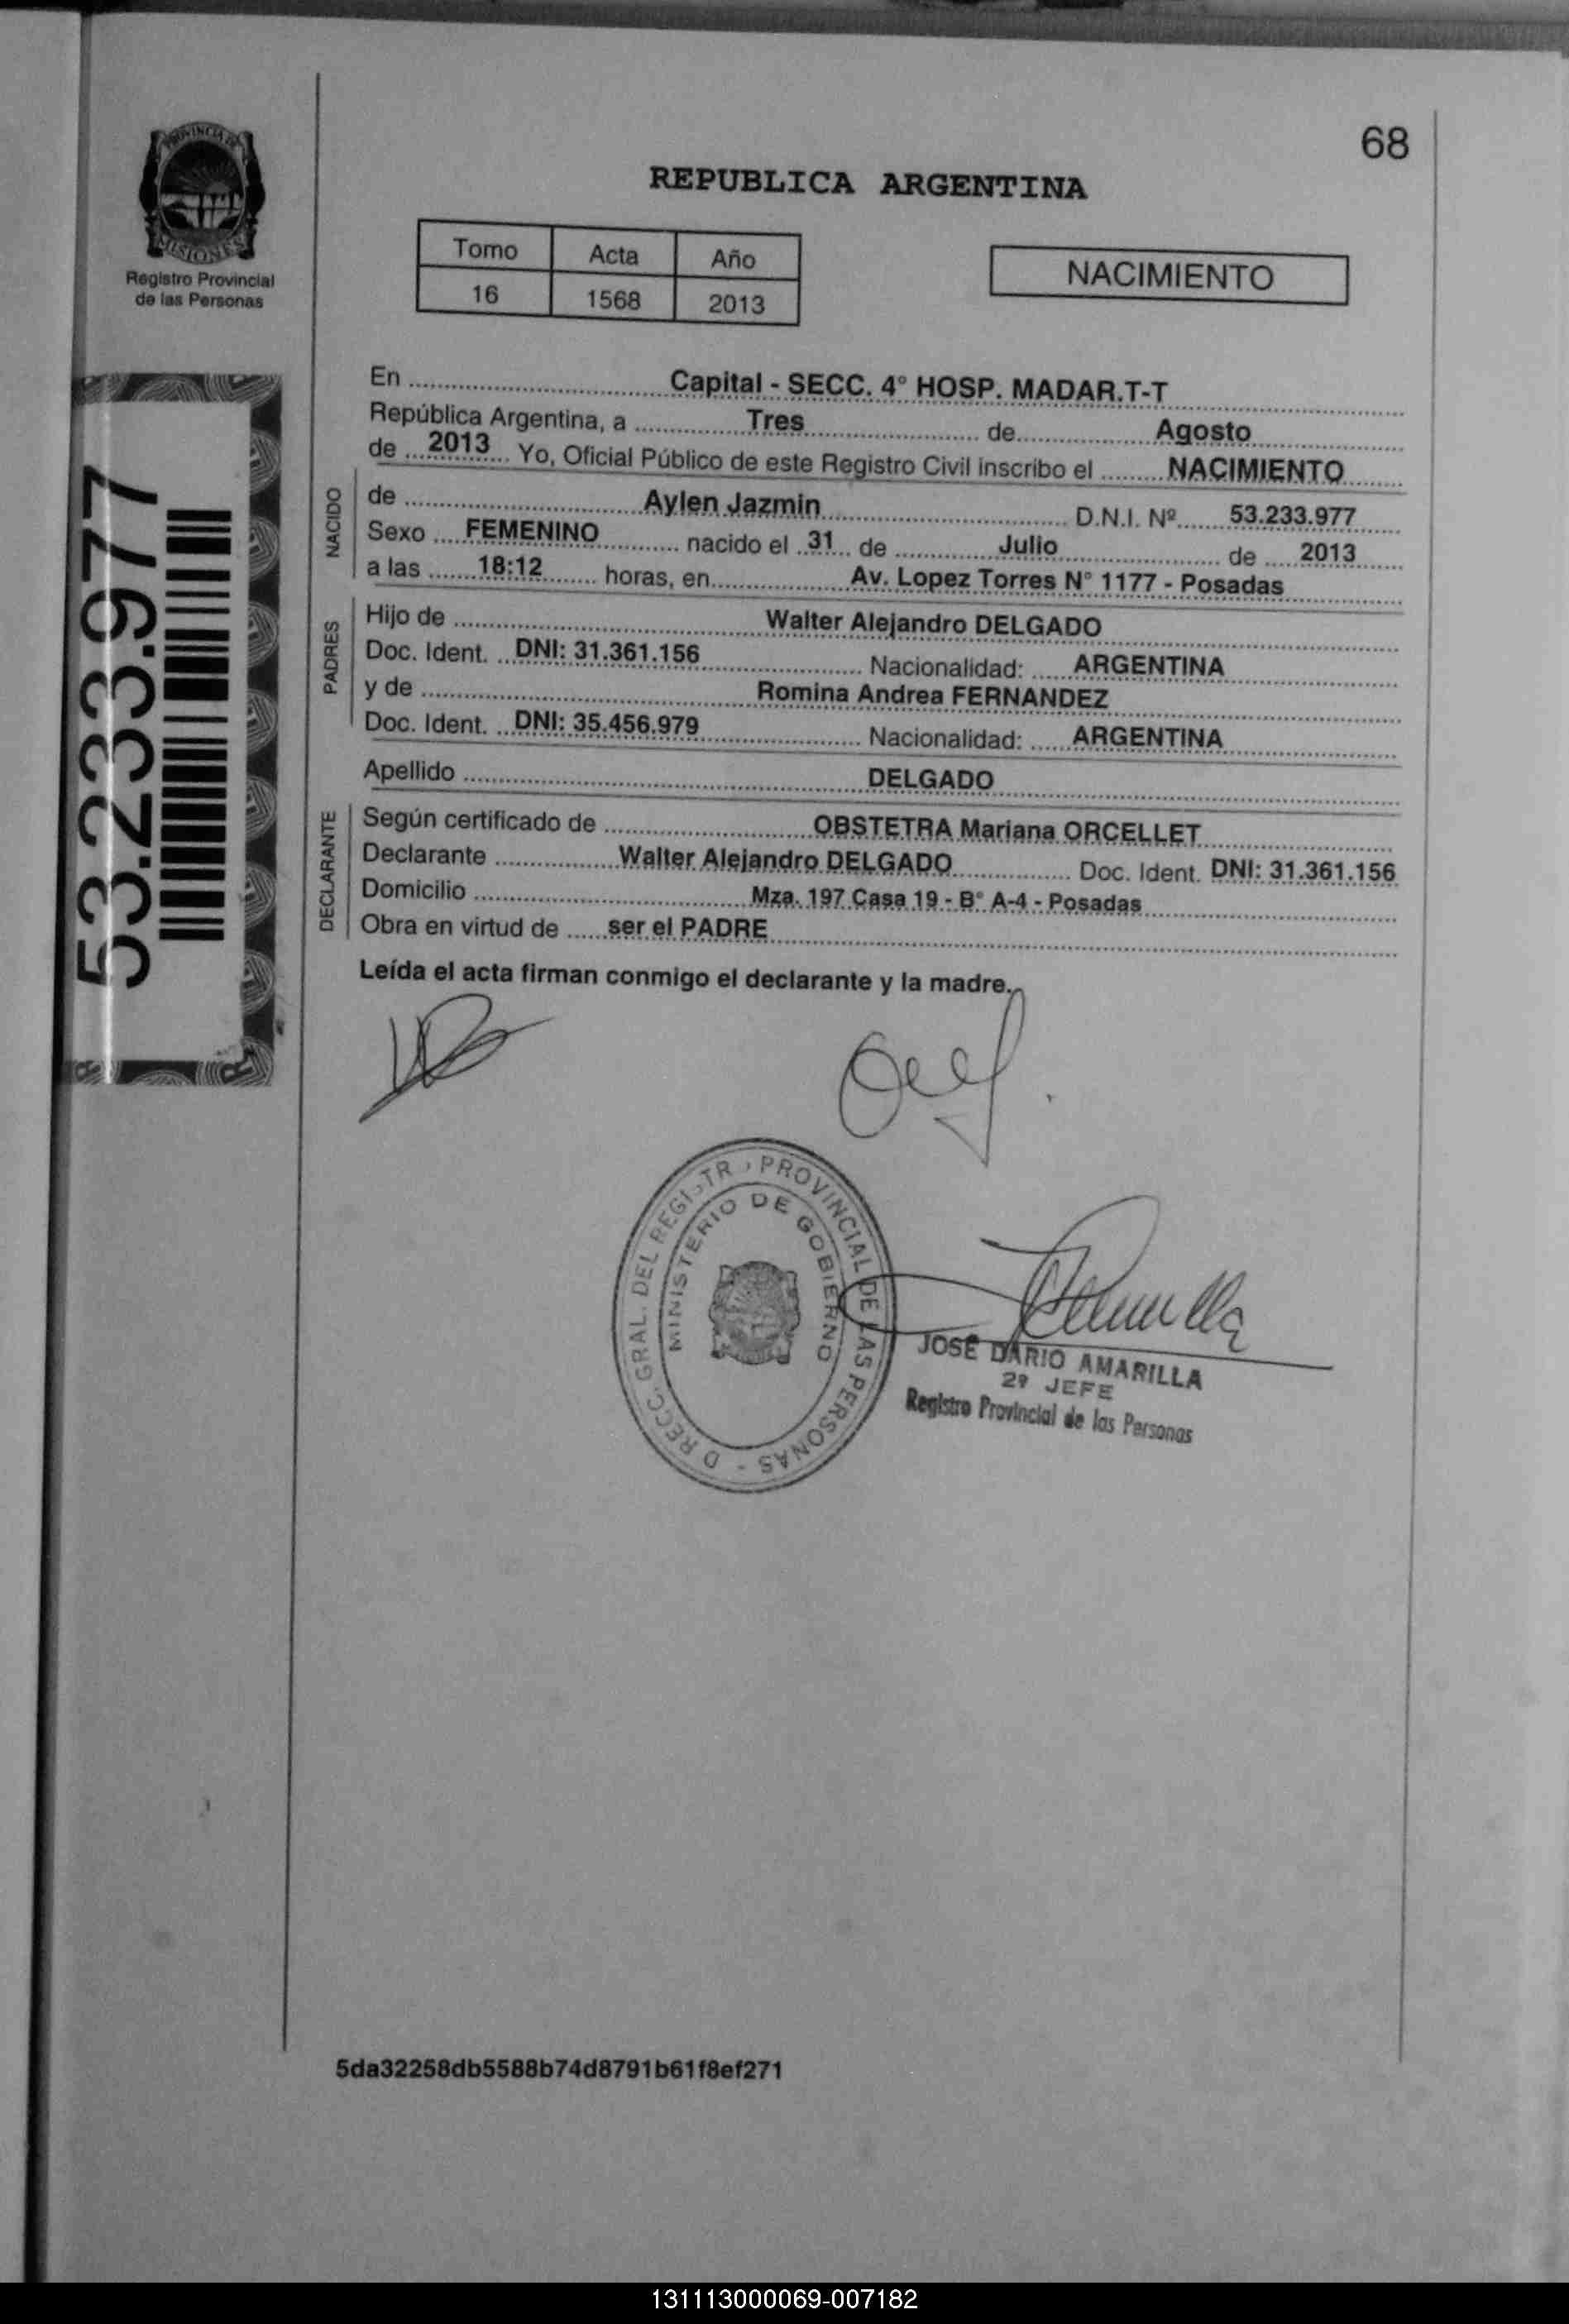 68
PROVINCIA DE
MISIONES
Registro Provincial
de las Personas
REPUBLICA ARGENTINA
Tomo Acta Año
16 1568 2013
NACIMIENTO
53.233.977
En Capital - SECC. 4° HOSP. MADAR.T-T
República Argentina, a Tres de Agosto
de 2013 Yo, Oficial Público de este Registro Civil inscribo el NACIMIENTO
NACIDO
de Aylen Jazmin D.N.I. Nº 53.233.977
Sexo FEMENINO nacido el 31 de Julio de 2013
a las 18:12 horas, en Av. Lopez Torres N° 1177 - Posadas
PADRES
Hijo de Walter Alejandro DELGADO
Doc. Ident. DNI: 31.361.156 Nacionalidad: ARGENTINA
y de Romina Andrea FERNANDEZ
Doc. Ident. DNI: 35.456.979 Nacionalidad: ARGENTINA
Apellido DELGADO
DECLARANTE
Según certificado de OBSTETRA Mariana ORCELLET
Declarante Walter Alejandro DELGADO Doc. Ident. DNI: 31.361.156
Domicilio Mza. 197 Casa 19 - B° A-4 - Posadas
Obra en virtud de ser el PADRE
Leída el acta firman conmigo el declarante y la madre.
D RECC. GRAL. DEL REGISTR PROVINCIAL DE LAS PERSONAS -
MINISTERIO DE GOBIERNO
JOSE DARIO AMARILLA
2º JEFE
Registro Provincial de las Personas
5da32258db5588b74d8791b61f8ef271
131113000069-007182